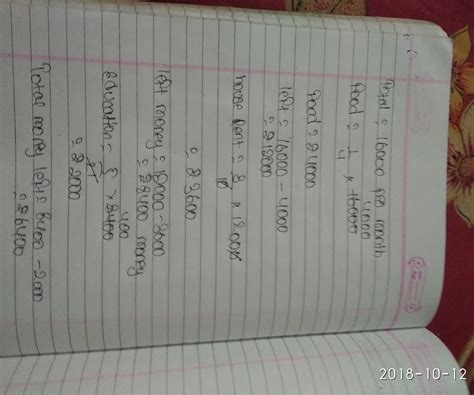 Total = 16000 per month
4000
Food = 1/4 × 16000
Food = ₹ 4000
left = 16000 - 4000
= ₹ 12000
House Rent = 3/10 × 12000
= ₹ 3600
left money = 12000 - 3600
= ₹ 8400 money
400
Education = 5/21 × 8400
= ₹ 2000
Total money left = 8400 - 2000
= ₹ 6400
2018-10-12